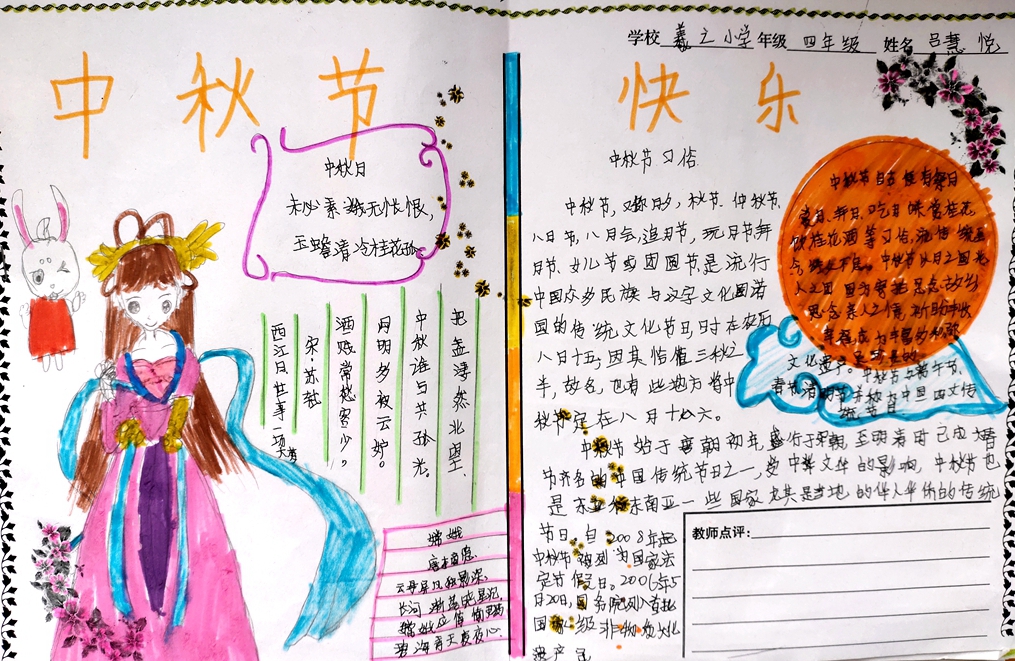 学校 羲之小学 年级 四年级 姓名 吕慧悦
中秋节
快乐
中秋日
未必素娥无怅恨,
玉蟾清冷桂花孤
把盏凄然北望
中秋谁与共孤光
月明多被云妒。
酒贱常愁客少,
宋 苏轼
西江月 世事一
嫦娥
唐 李商隐
云母屏风烛影深,
长河渐落晓星沉
嫦娥应悔偷
碧海青天夜夜心
中秋节习俗
中秋节,又称月夕,秋节、仲秋节、
八月节,八月会,追月节,玩月节
月节、女儿节或团圆节是流行
中国众多民族与汉字文化圈诸
国的传统文化节日,时在农历
八月十五;因其恰值三秋之
半,故名,也有些地方将中
秋节定在八月十六。
中秋节始于唐朝初年,盛行于宋朝,至明清时已成
节齐名的中国传统节日之一,受中华文化的影响,中秋节也
是东南亚一些国家尤其是当地的华人华侨的传统
节日。自2008年起
中秋节被列为国家法
定节假日。2006年5
月20日,国务院列入首批
国家级非物质文化
遗产
中秋节自古便有祭月
赏月、拜月、吃月饼、赏桂花
饮桂花酒等习俗,流传至
今,经久不息。中秋节以月之圆兆
人之团圆,为寄托思念故乡
思念亲人之情,祈盼丰收
文化遗产。
统节日
教师点评: